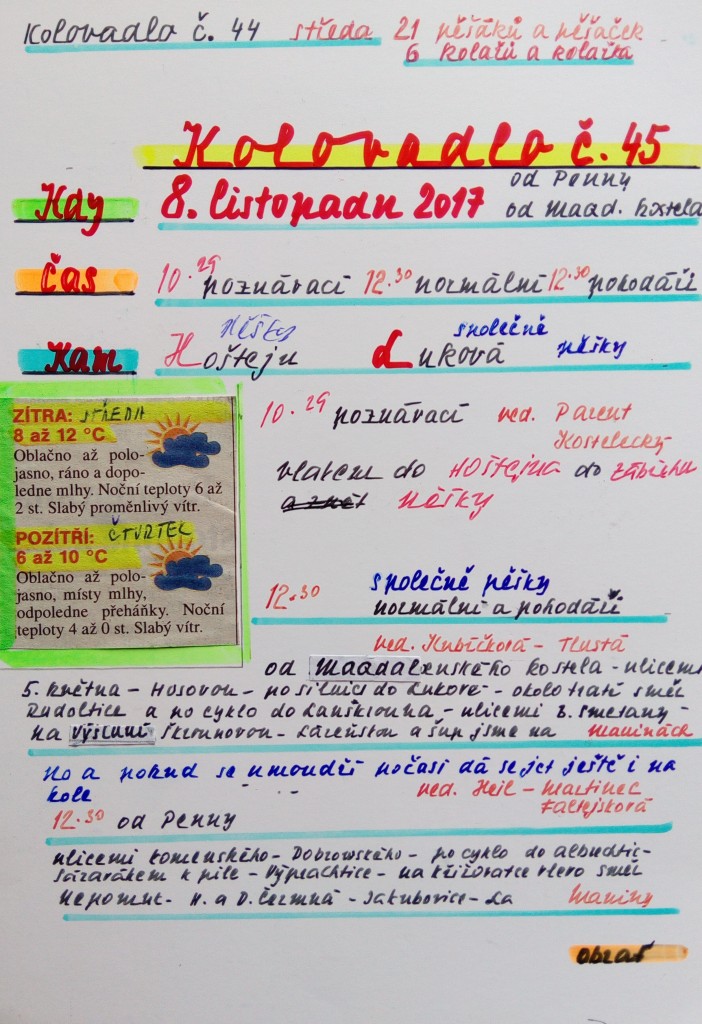 Kolovadlo č. 44 středa 21 pěšáků a pěšaček
6 kolařů a kolařka
Kolovadlo č. 45
Kdy 8. listopadu 2017 od Penny
od Maad. kostela
Čas 10.29 poznávací 12.30 normální 12.30 pohodáři
Kam Hoštejn pěšky Luková společně pěšky
ZÍTRA: STŘEDA
8 až 12 °C
Oblačno až polo-
jasno, ráno a dopo-
ledne mlhy. Noční teploty 6 až
2 st. Slabý proměnlivý vítr.
POZÍTŘÍ: ČTVRTEK
6 až 10 °C
Oblačno až polo-
jasno, místy mlhy,
odpoledne přeháňky. Noční
teploty 4 až 0 st. Slabý vítr.
10.29 poznávací ved. Parent
Kostelecký
vlakem do Hoštejna do Zábřehu
pěšky
12.30 společně pěšky
normální a pohodáři
ved. Kubíčková - Tlustá
od Maadalenského kostela - ulicemi
5. května - Husovou - po silnici do Lukové - okolo trati směr
Rudoltice a po cyklo do Lanškrouna - ulicemi B. Smetany -
na výsluní Škroupovou - Lázeňskou a šup jsme na Maninách
No a pokud se umoudří počasí dá se jet ještě i na
kole ved. Heil - Martinec
Faltejsková
12.30 od Penny
ulicemi Komenského - Dobrovského - po cyklo do Albrechtic -
Sázavákem k pile - Výprachtice - na křižovatce vlevo směr
Nepomuk - H. a D. Čermná - Jakubovice - La Maniny
obrať